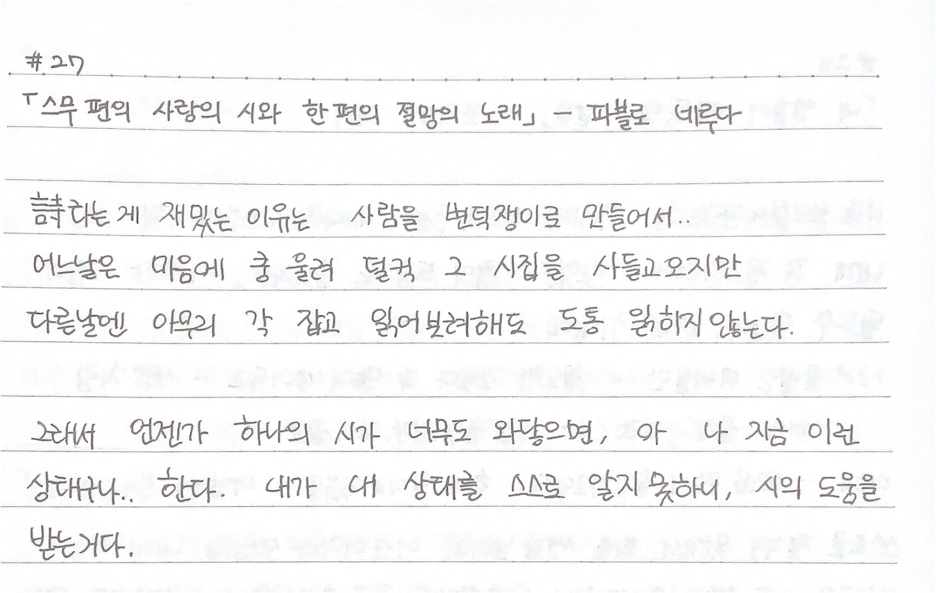 #27
「스무 편의 사랑의 시와 한 편의 절망의 노래」 - 파블로 네루다
詩라는 게 재밌는 이유는 사람을 변덕쟁이로 만들어서.
어느날은 마음에 쿵 울려 덜컥 그 시집을 사들고오지만
다른날엔 아무리 각 잡고 읽어보려해도 도통 읽히지 않는다.
그래서 언젠가 하나의 시가 너무도 와닿으면, 아 나 지금 이런
상태구나.. 한다. 내가 내 상태를 스스로 알지 못하니, 시의 도움을
받는거다.